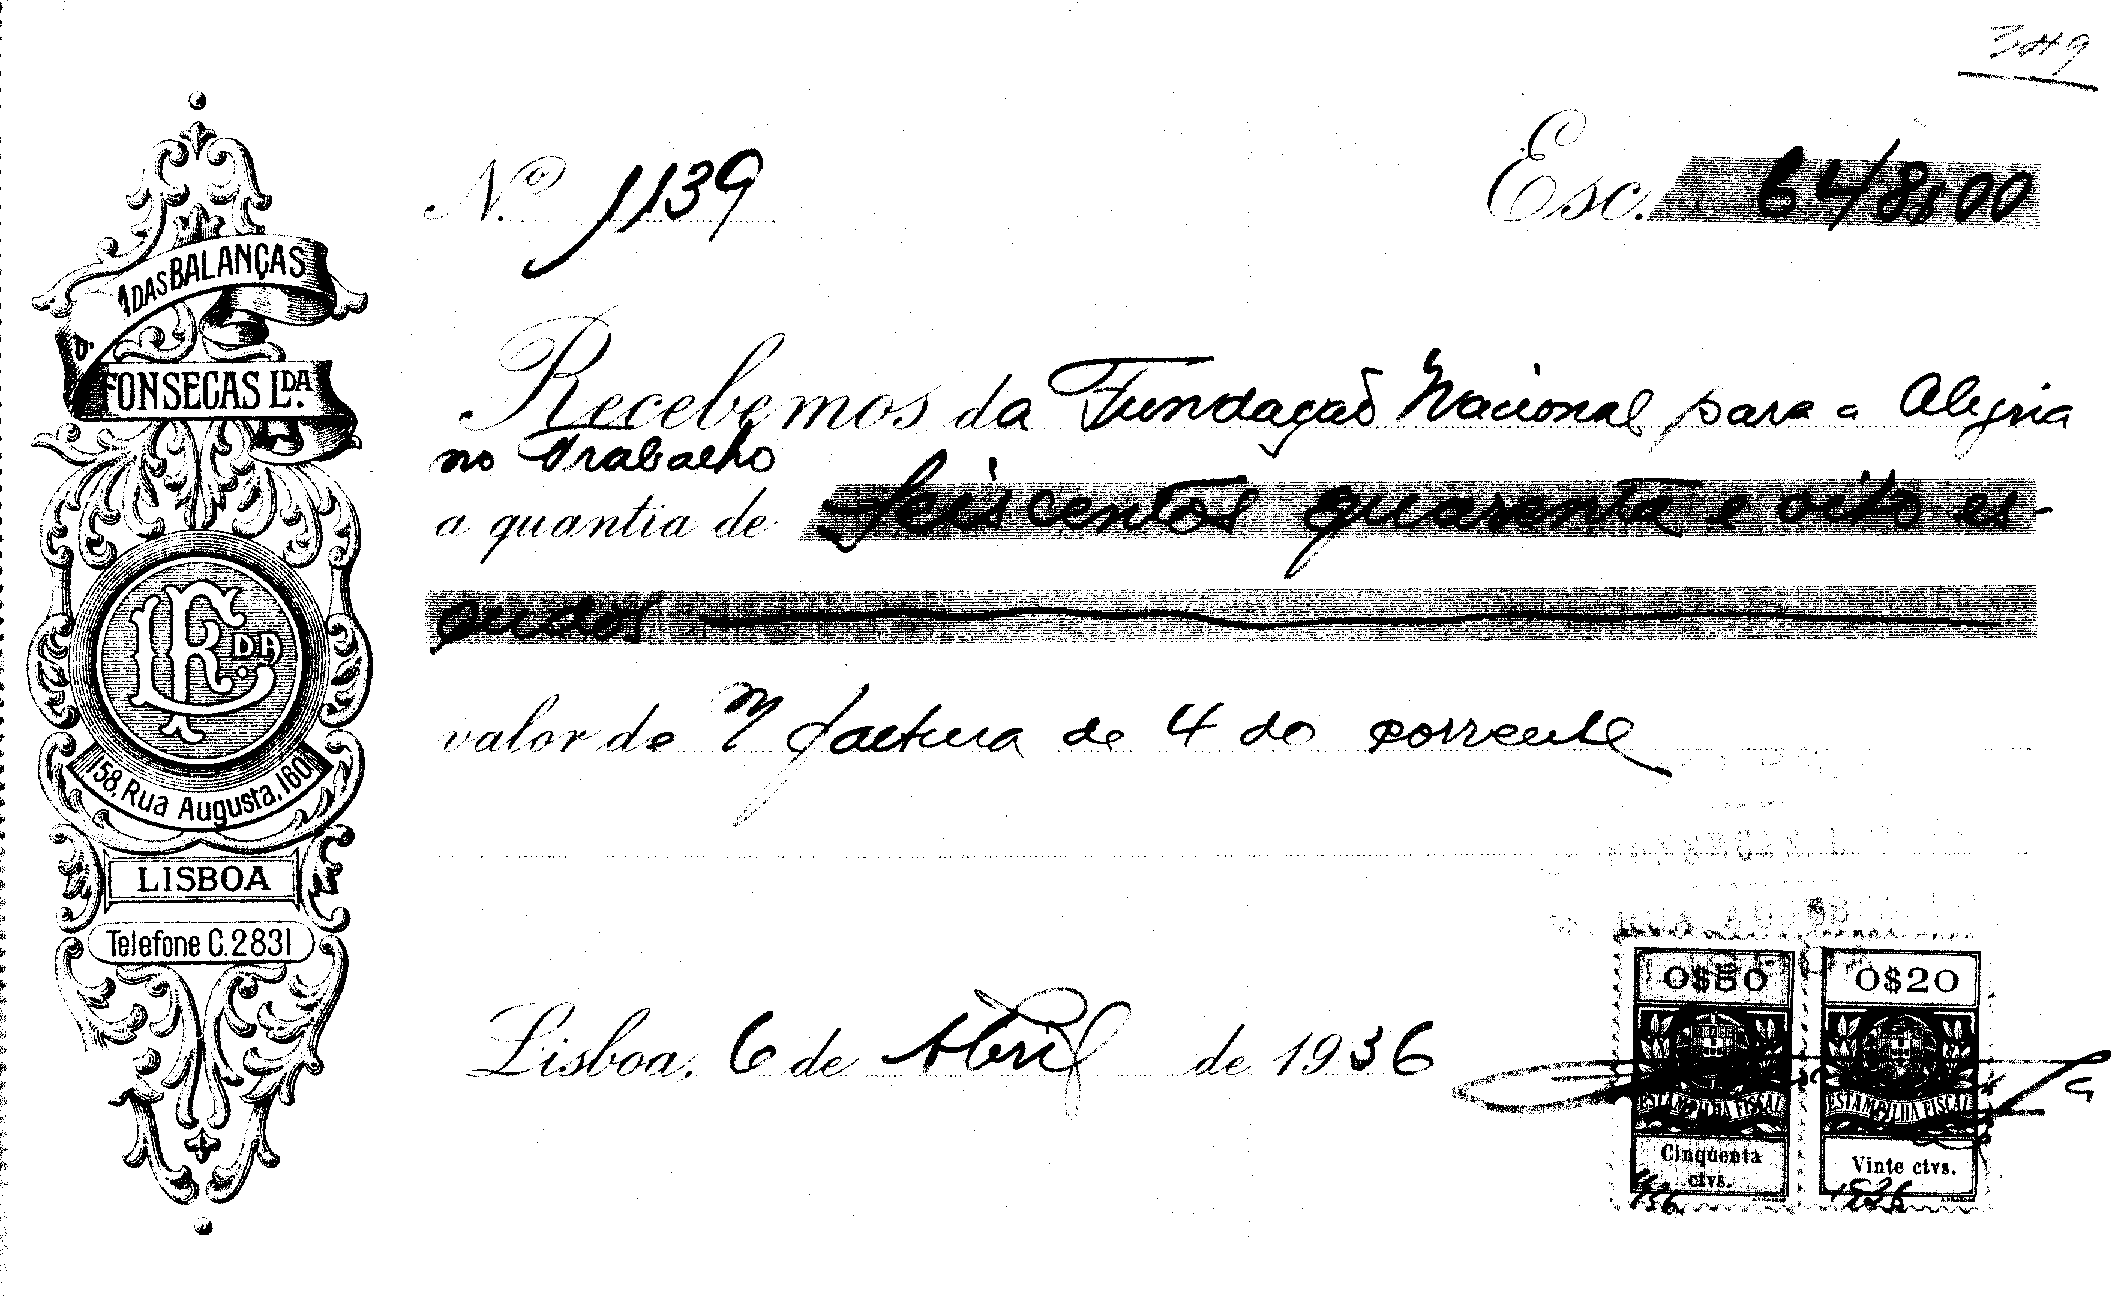 349
Nº 1139
Esc. 648$00
DAS BALANÇAS
FONSECAS LDA.
Recebemos da Fundação Nacional para a Alegria
no Trabalho
a quantia de Seiscentos quarenta e oito es-
cudos
valor de n/ factura de 4 do corrente
LF DA
158, Rua Augusta, 160
LISBOA
Telefone C. 2831
Lisboa, 6 de Abril de 1936
0$50
0$20
ESTAMPILHA FISCAL
ESTAMPILHA FISCAL
Cinquenta
ctvs.
Vinte ctvs.
1936